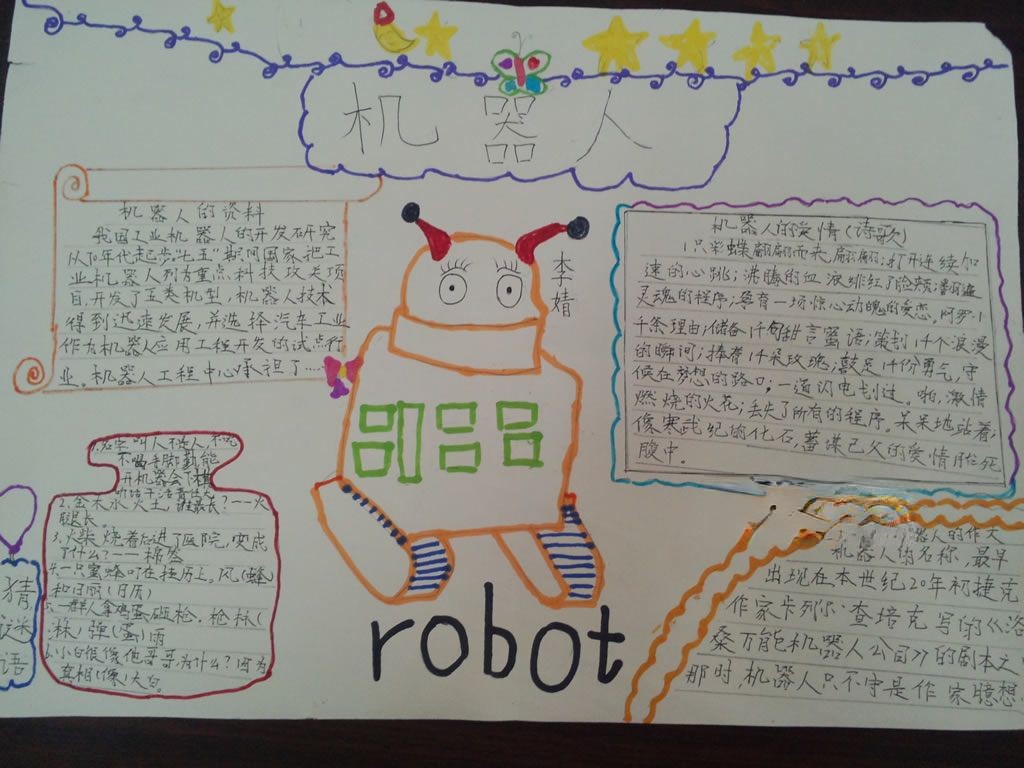 机器人
机器人的资料
我国工业机器人的开发研究
从70年代起步"七五"期间国家把工
业机器人列为重点科技攻关项
目,开发了五类机型,机器人技术
得到迅速发展,并选择汽车工业
作为机器人应用工程开发的试点行
业。机器人工程中心承担了....
李婧
机器人的爱情(诗歌)
1只彩蝶翩翩而来,翩翩;打开连续加
速的心跳;沸腾的血液绯红了脸颊;
灵魂的程序;孕育一场惊心动魄的爱恋,阿罗1
千条理由;储备1千句甜言蜜语;策划1千个浪漫
的瞬间;捧着1千朵玫瑰;鼓足1千份勇气,守
候在梦想的路口;一道闪电划过。啪,激情
燃烧的火花;丢失了所有的程序。呆呆地站着;
像寒武纪的化石,蓄谋已久的爱情胎死
腹中。
不喝
开机器会下棋
2.金木水火土,谁最长?——火
腿长。
3.火柴烧着后进了医院,变成
了什么?——棉签
一只蜜蜂叮在挂历上,风(蜂)
和日丽(日历)
一群人拿鸡蛋砸枪。枪林(
淋)弹(蛋)雨
6.小白很像他哥哥,为什么?因为
真相(像)大白。
猜
谜
语
robot
机器人的名称,最早
出现在本世纪20年初捷克
作家卡列尔·查培克写的《洛
桑万能机器人公司》的剧本之
那时,机器人只不守是作家臆想